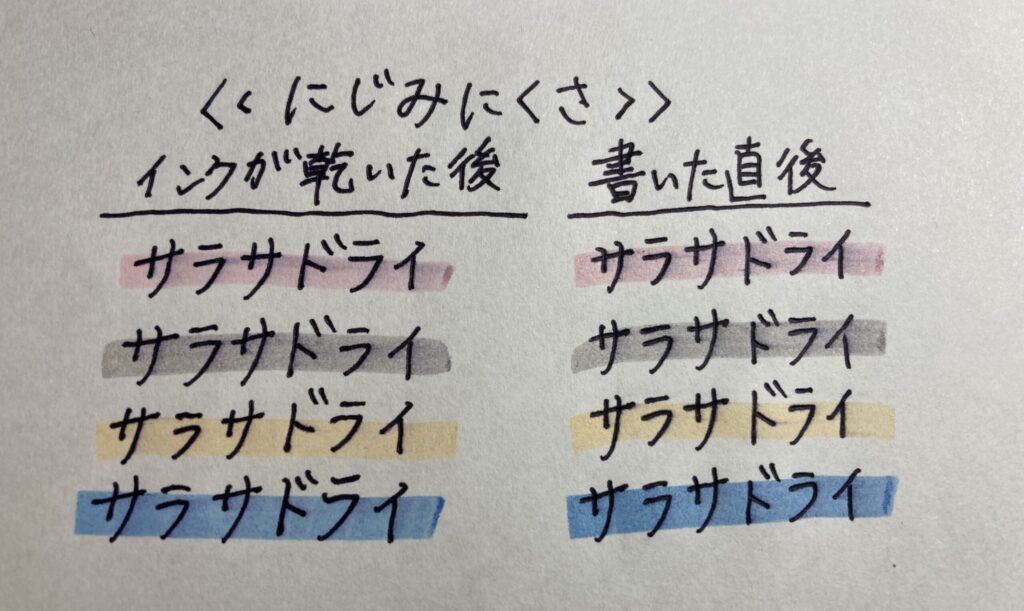 << にじみにくさ >>
インクが乾いた後 書いた直後
サラサドライ サラサドライ
サラサドライ サラサドライ
サラサドライ サラサドライ
サラサドライ サラサドライ